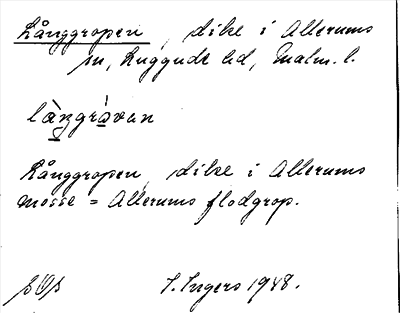 Långgropen, dike i Allerums
sn, Luggude hd, Malm. l.
làŋgràvan
Långgropen, dike i Allerums
mosse = Allerums flodgrop.
I. Ingers 1948.